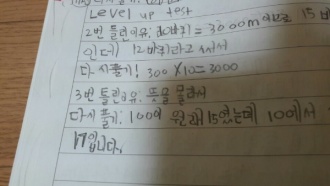 Level up test
2번 틀린이유: 10바퀴 = 3000m 이므로 15바
인데 12바퀴라고 써서
다시풀기: 300 X 10 = 3000
3번 틀린이유: 뜻을 몰라서
다시풀기: 100이 원래 15였는데 10에서
17입니다.